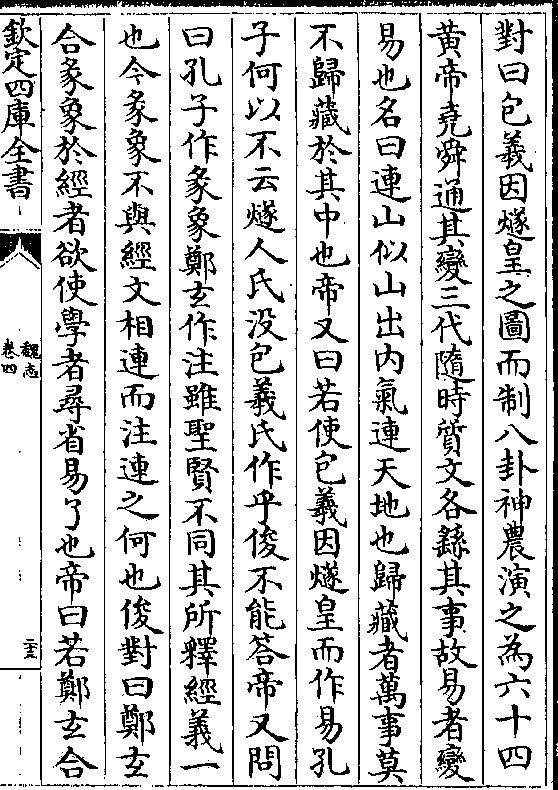 對曰包羲因燧皇之圖而制八卦神農演之為六十四
黃帝堯舜通其變三代隨時質文各繇其事故易者變
易也名曰連山似山出内氣連天地也歸藏者萬事莫
不歸藏於其中也帝又曰若使包羲因燧皇而作易孔
子何以不云燧人氏沒包羲氏作乎俊不能答帝又問
曰孔子作彖象鄭玄作注雖聖賢不同其所釋經義一
也今彖象不與經文相連而注連之何也俊對曰鄭玄
合彖象於經者欲使學者尋省易了也帝曰若鄭玄合
欽定四庫全書
魏志
卷四
二十五